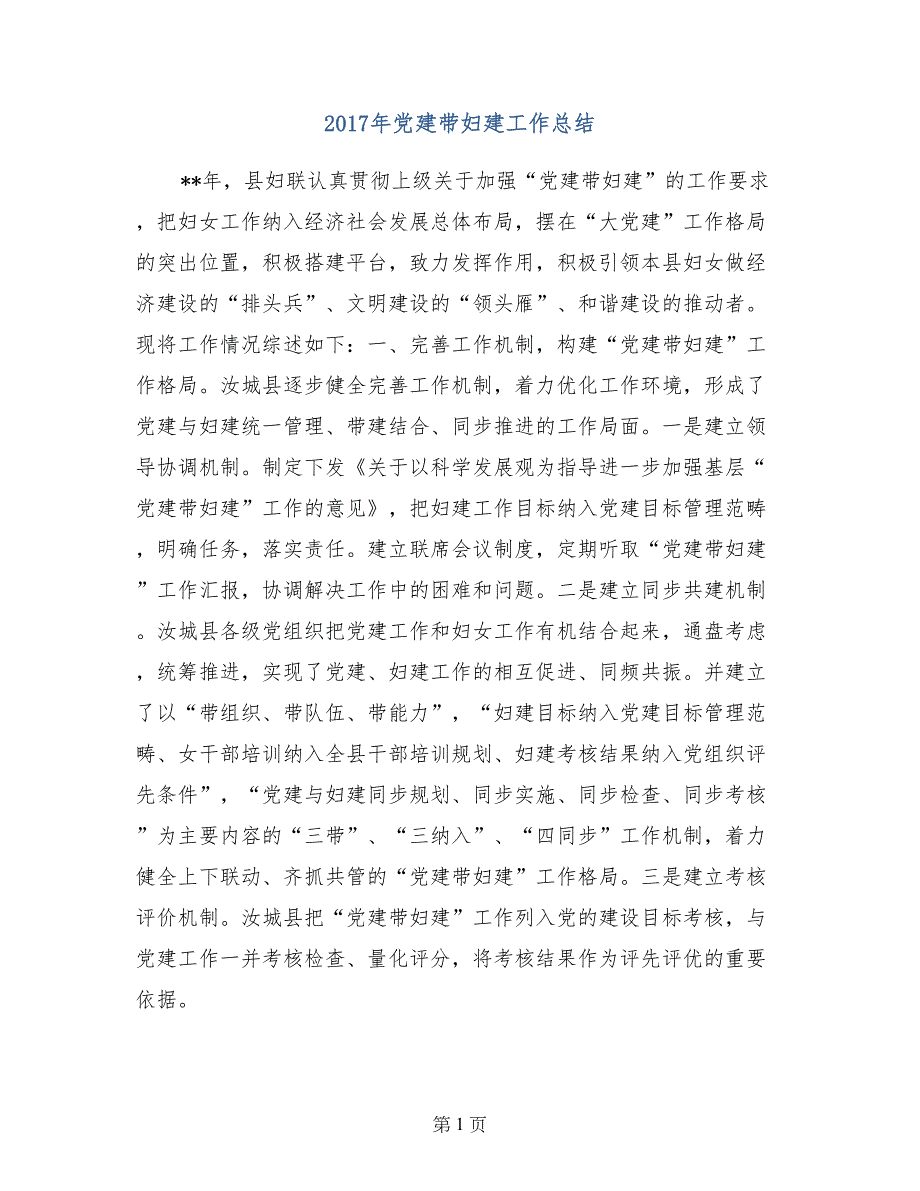 2017年党建带妇建工作总结
**年，县妇联认真贯彻上级关于加强“党建带妇建”的工作要求
，把妇女工作纳入经济社会发展总体布局，摆在“大党建”工作格局
的突出位置，积极搭建平台，致力发挥作用，积极引领本县妇女做经
济建设的“排头兵”、文明建设的“领头雁”、和谐建设的推动者。
现将工作情况综述如下：一、完善工作机制，构建“党建带妇建”工
作格局。汝城县逐步健全完善工作机制，着力优化工作环境，形成了
党建与妇建统一管理、带建结合、同步推进的工作局面。一是建立领
导协调机制。制定下发《关于以科学发展观为指导进一步加强基层“
党建带妇建”工作的意见》，把妇建工作目标纳入党建目标管理范畴
，明确任务，落实责任。建立联席会议制度，定期听取“党建带妇建
”工作汇报，协调解决工作中的困难和问题。二是建立同步共建机制
。汝城县各级党组织把党建工作和妇女工作有机结合起来，通盘考虑
，统筹推进，实现了党建、妇建工作的相互促进、同频共振。并建立
了以“带组织、带队伍、带能力”，“妇建目标纳入党建目标管理范
畴、女干部培训纳入全县干部培训规划、妇建考核结果纳入党组织评
先条件”，“党建与妇建同步规划、同步实施、同步检查、同步考核
”为主要内容的“三带”、“三纳入”、“四同步”工作机制，着力
健全上下联动、齐抓共管的“党建带妇建”工作格局。三是建立考核
评价机制。汝城县把“党建带妇建”工作列入党的建设目标考核，与
党建工作一并考核检查、量化评分，将考核结果作为评先评优的重要
依据。
第 1 页